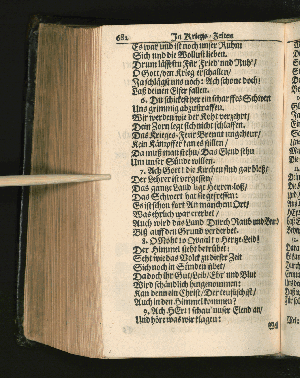 682 In Kriegs-Zeiten
Es war und ist noch unser Ruhm
Sich und die Wollust lieben.
Drum lässestu Für Fried und Ruh'/
O Gott/ den Krieg erschallen/
Ja schlägst uns noch: Ach schone doch!
Laß deinen Eifer fallen.
6. Du schickest her ein scharffes Schwert
Uns grimmig abzustraffen.
Wir werden wie der Koht verzehrt/
Dein Zorn legt sich nicht schlaffen.
Das Krieges-Feur Brennt ungeheur/
Kein Kämpffer kan es stillen/
Da muß man sehn/ Das Elend stehn
Um unser Sünde willen.
7. Ach Gott! die Kirchen sind gar bloß/
Der Lehrer ist vergessen/
Das gantze Land ligt Herren-loß/
Das Schwert hat sie gefressen:
Es ist schon fort An manchem Ort/
Was ehrlich war erbauet/
Auch wird das Land Durch Raub und
Biß auff den Grund verderbet.
8. O Noht! o Quaal! o Hertze-Leid!
Der Himmel steht betrübet:
Seht wie das Volck zu dieser Zeit
Sich noch in Sünden übet/
Da doch ihr Gut/ Leib/ Ehr' und Blut
Wird schändlich hingenommen:
Kan denn ein Christ/ Der
Auch in den Himmel kommen?
9. Ach HErr! schau' unser Elend an/
Und höre was wir klagen: